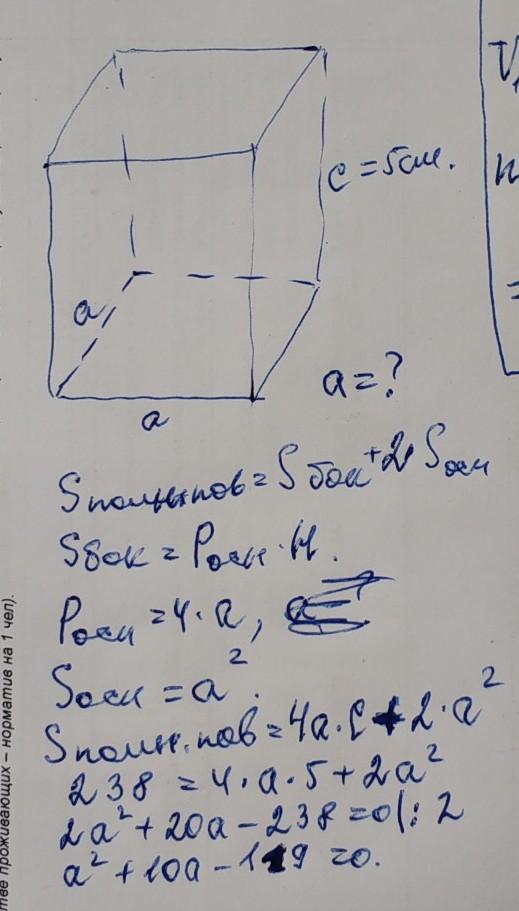 V₁
н
c = 5см.
=
a
a = ?
a
Sполн.пов = Sбок + 2·Sосн
Sбок = Pосн · H.
Pосн = 4 · a,
Sосн = a².
Sполн.пов = 4a·c + 2·a²
238 = 4·a·5 + 2a²
2a² + 20a – 238 = 0 |: 2
a² + 10a – 119 = 0.
тве проживающих – норматив на 1 чел).